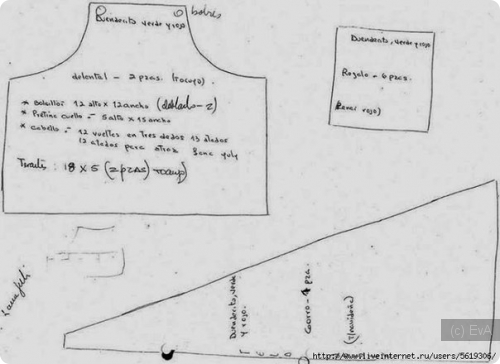 Duendecito verde y rojo
delantal - 2 pzas.
* Bolsillos 12 alto x 12 ancho (doblado - 2)
* Pretina cuello - 5 alto x 15 ancho
* cabello - 12 vueltas en tres dedos 13 atados
12 atados para otros lana
18 x 5 (2 pzas)
Duendecito, verde y rojo
Regalo - 6 pzas.
rojo)
Duendecito, verde
y rojo.
Gorro - 4 pza.
(c) EvA
http://www.liveinternet.ru/users/5619306/